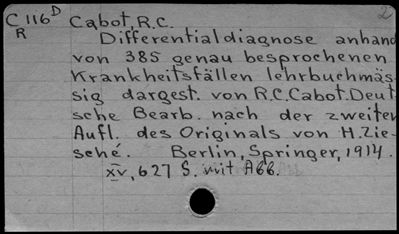 C 116 D Cabot, R.C. 2
R Differentialdiagnose anhand
von 385 genau besprochenen
Krankheitsfällen lehrbuchmäs-
sig dargest. von R.C. Cabot. Deut
sche Bearb. nach der zweiten
Aufl. des Originals von H. Zie-
sché. Berlin, Springer, 1914.
XV, 627 S. mit Abb.